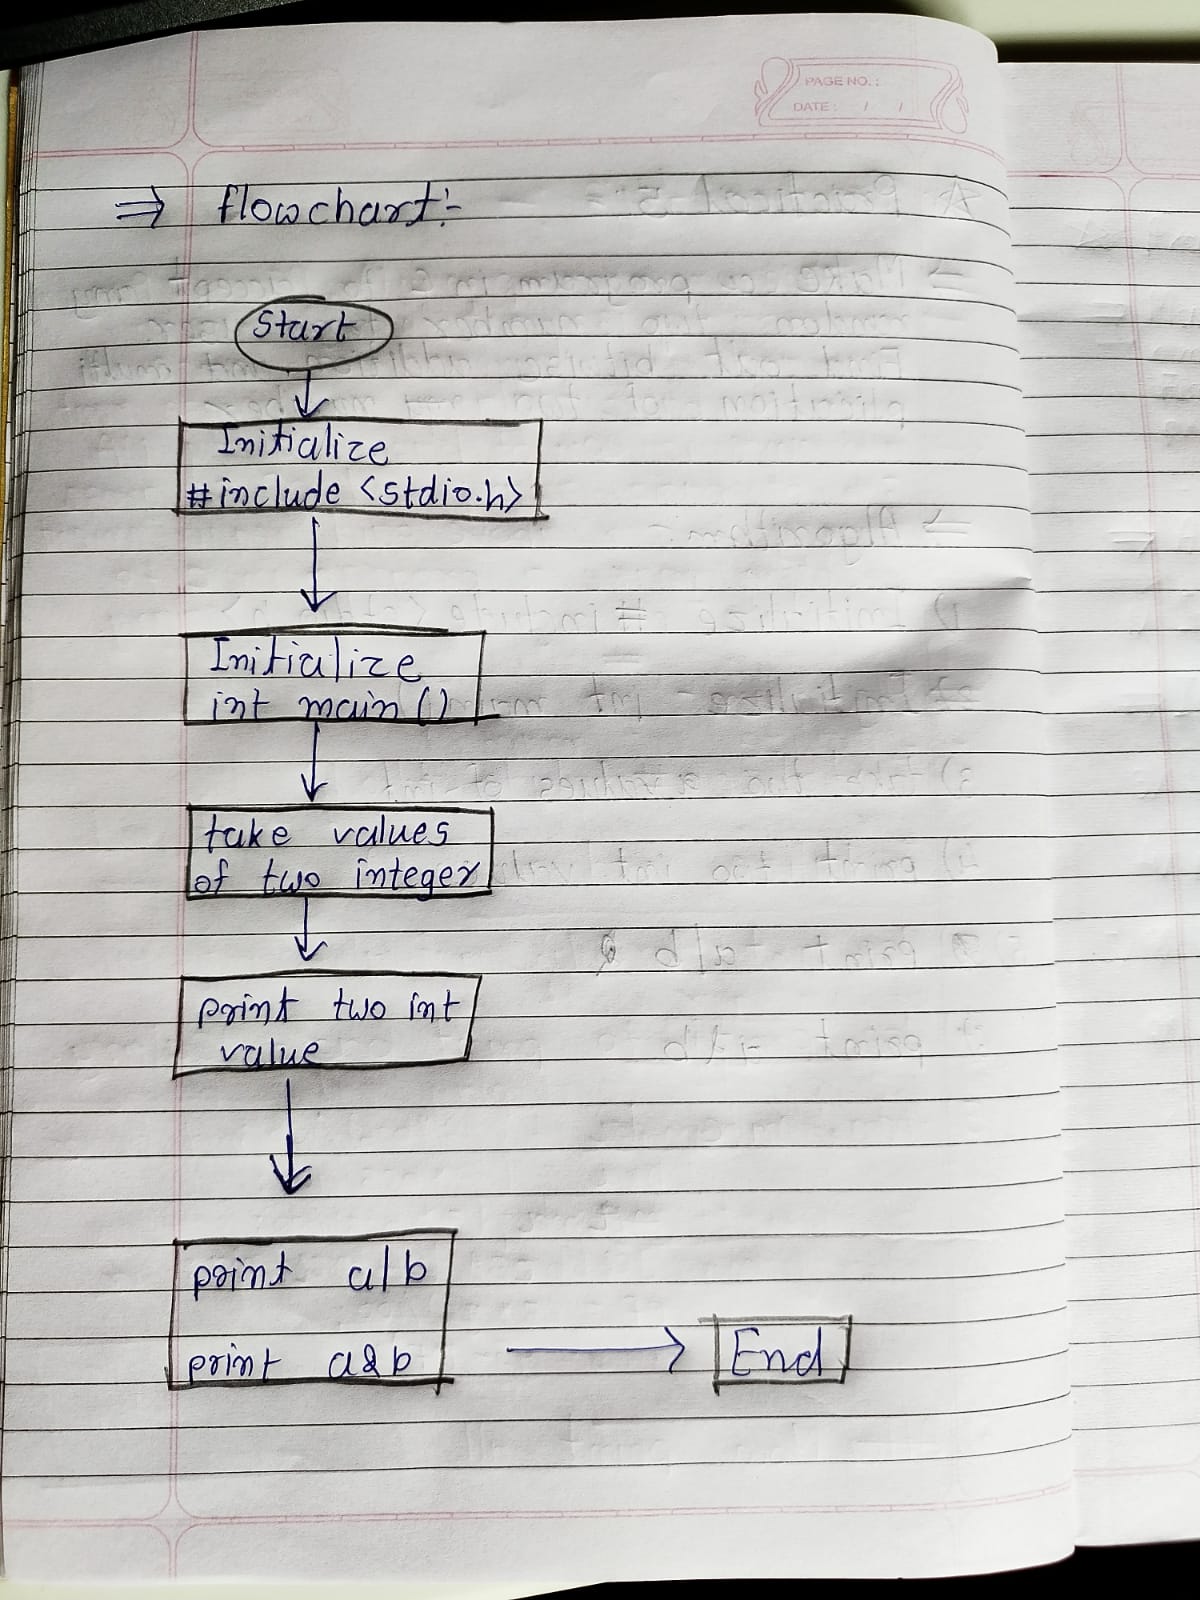 PAGE NO.:
DATE: / /
⇒ flowchart:-
Start
Initialize
#include <stdio.h>
Initialize
int main()
take values
of two integer
print two int
value
print a|b
print a&b
End